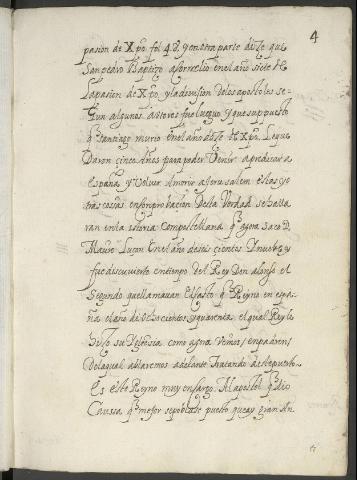 4
pasion de Xpo fol 48. y en otra parte dize que
San pedro Baptizo a Cornelio en el año siete de
la pasion de Xpo, y la devision de los apostoles se-
gun algunos autores fue luego y que supuesto
q̄ santiago murio en el año de de Xpo. Le que
daron cinco años para poder venir a predicar a
españa y volver a morir a Jerusalem estas y o
tras cosas en conprobacion desta verdad se halla
ran en la istoria compostellana q̄ agora saco D.
Mauro en el año de seis cientos y
fue discuvierto en tienpo del Rey Don alonso el
Segundo que llamavan el Casto q̄ Reyno en espa-
ña el año de ochocientos y quarenta el qual Rey le
hizo su Yglesia como agora vemos en padron
de la qual ablaremos adelante tratando de su
Es este Reyno muy en cargo Al apostol q̄ dio
Caussa q̄ mejor se poblase puesto que ay gran an